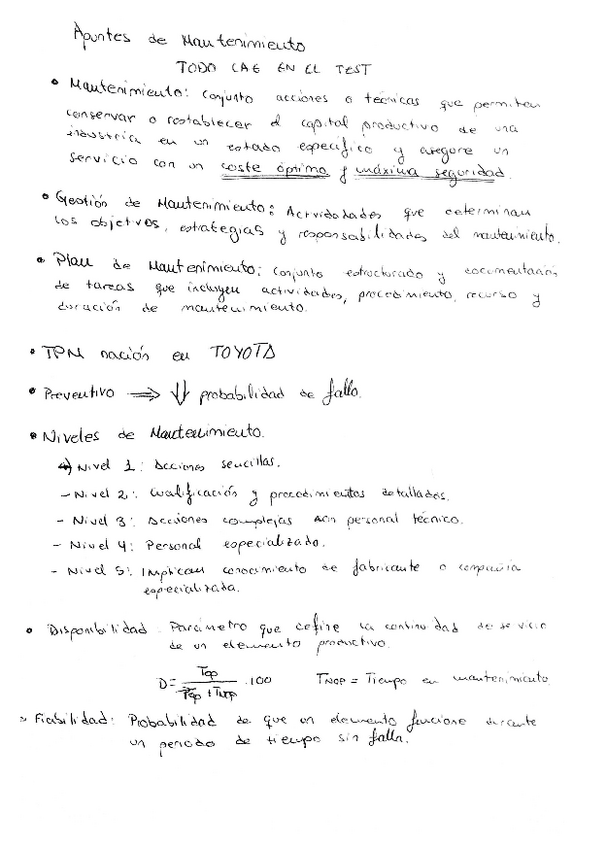 Apuntes de Mantenimiento
TODO CAE EN EL TEST
• Mantenimiento: Conjunto acciones o técnicas que permiten
conservar o restablecer el capital productivo de una
industria en un estado específico y asegure un
servicio con un coste óptimo y máxima seguridad.
• Gestión de Mantenimiento: Actividades que determinan
los objetivos, estrategias y responsabilidades del mantenimiento.
• Plan de Mantenimiento: Conjunto estructurado y documentación
de tareas que incluyen actividades, procedimiento, recurso y
duración de mantenimiento.
• TPM nación en TOYOTA
• Preventivo ⟹ ↓↓ probabilidad de fallo.
• Niveles de Mantenimiento.
Nivel 1: Acciones sencillas.
- Nivel 2: Cualificación y procedimientos detallados.
- Nivel 3: Acciones complejas con personal técnico.
- Nivel 4: Personal especializado.
- Nivel 5: Implican conocimiento de fabricante o compañía
especializada.
• Disponibilidad. Parámetro que define la continuidad de servicio
de un elemento productivo.
D = Top / (Top + Tnop) · 100 TNOP = Tiempo en mantenimiento
• Fiabilidad: Probabilidad de que un elemento funcione durante
un periodo de tiempo sin falla.